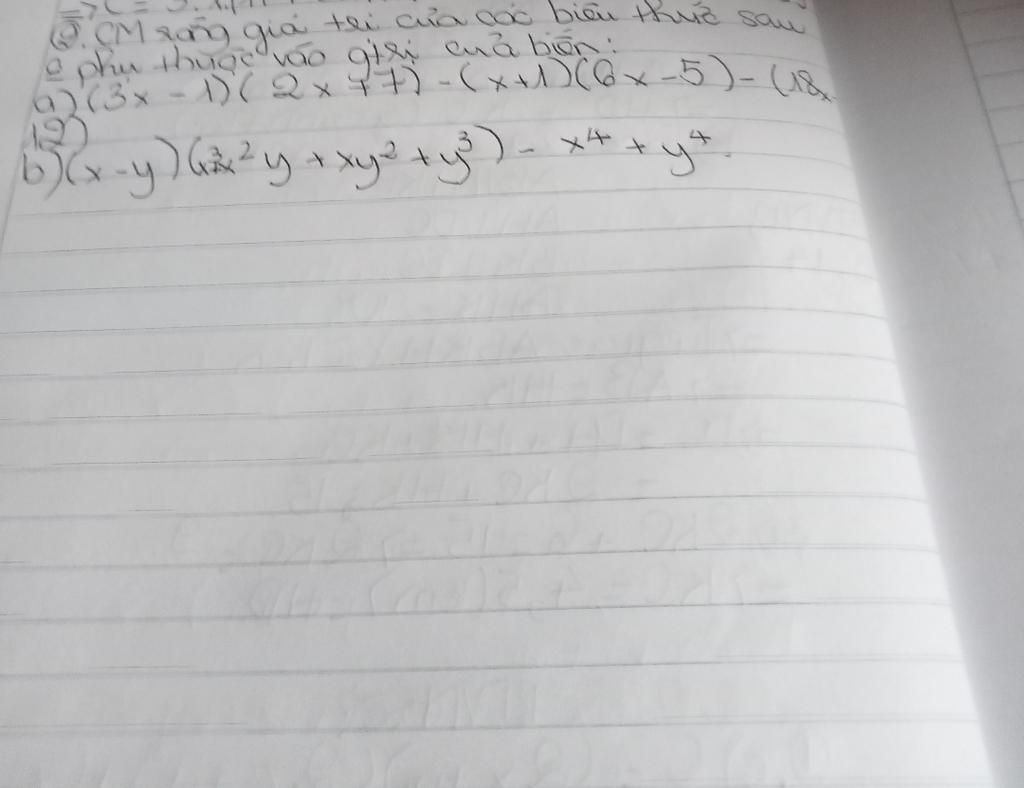 2. CM rằng giá trị của các biểu thức sau
phụ thuộc vào gtrị của biến:
a) (3x - 1)( 2x + 7) - (x+1)(6x - 5) - (18x
12)
b) (x - y)(x³+x²y + xy² + y³) - x⁴ + y⁴.